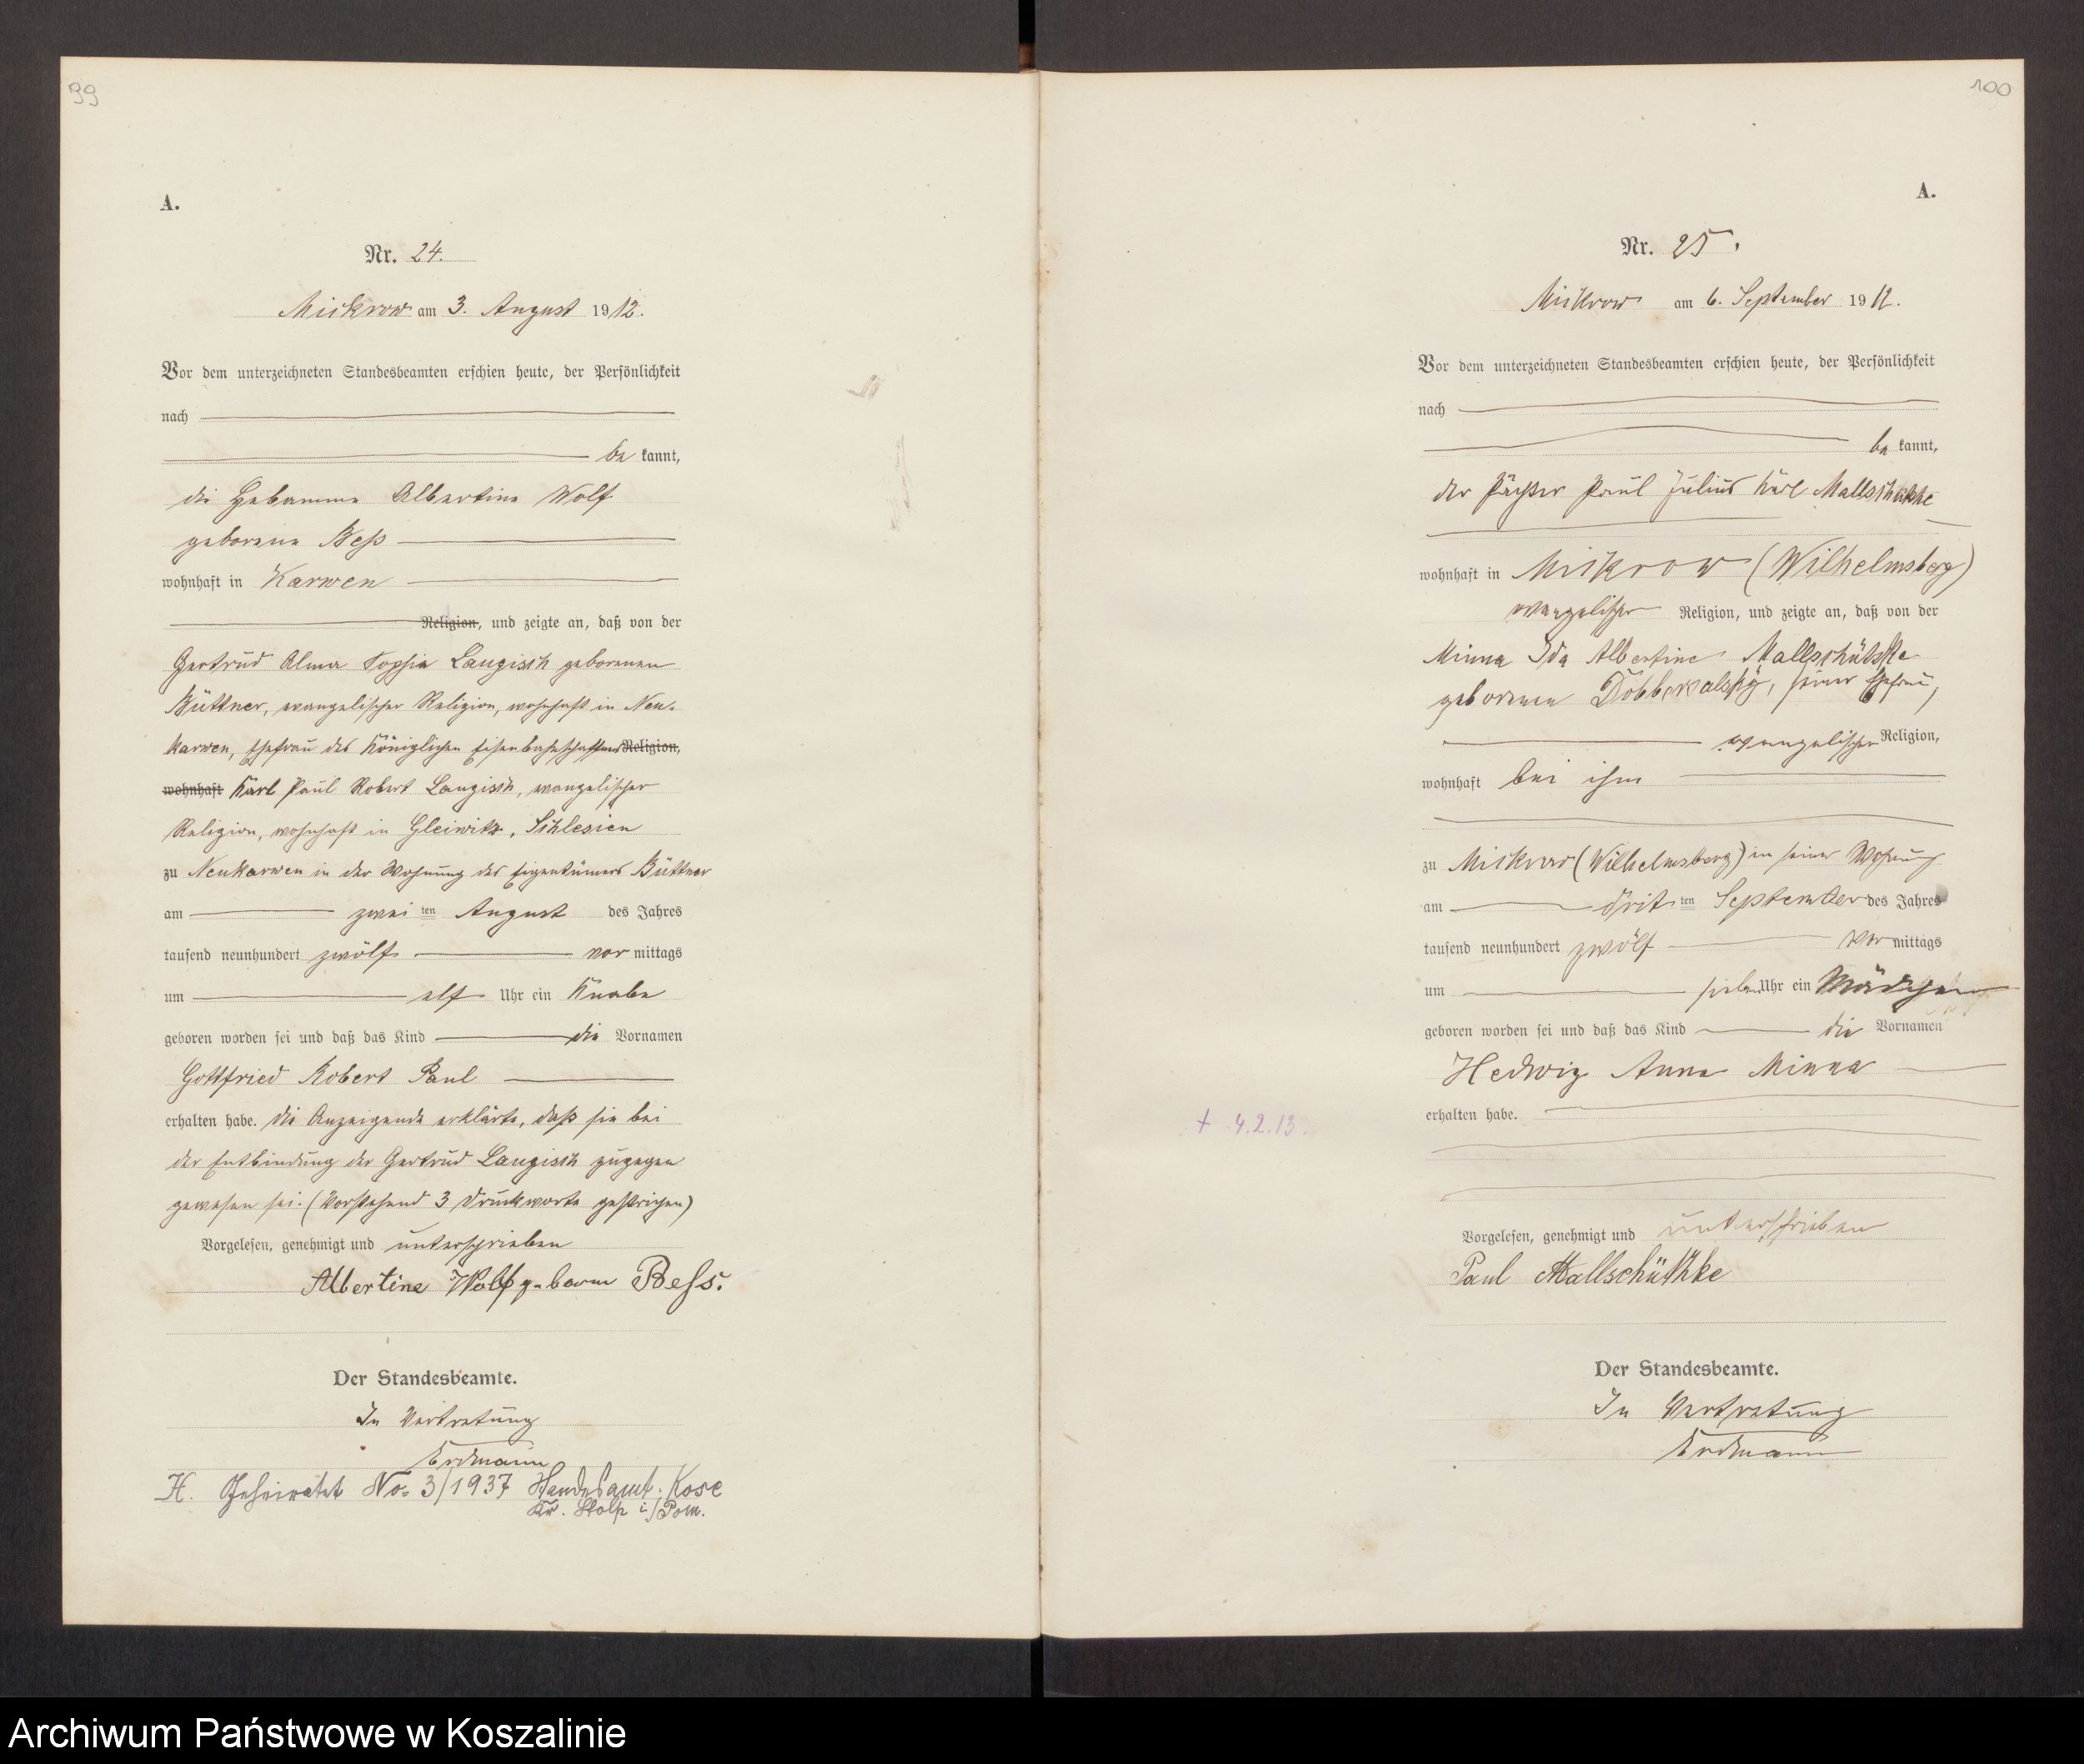 99
A.
Nr. 24.
Mickrow am 3. August 1912.
Vor dem unterzeichneten Standesbeamten erschien heute, der Persönlichkeit
nach
be kannt,
die Hebamme Albertine Wolf
geborene Beß
wohnhaft in Karwen
Religion, und zeigte an, daß von der
Gertrud Alma Sophia Laugisch geborenen
Büttner, evangelischer Religion, wohnhaft in Neu-
karwen, Ehefrau des Königlichen Eisenbahnschaffners Religion,
wohnhaft Karl Paul Robert Laugisch, evangelischer
Religion, wohnhaft in Gleiwitz, Schlesien
zu Neukarwen in der Wohnung des Eigentümers Büttner
am zwei ten August des Jahres
tausend neunhundert zwölf vor mittags
um elf Uhr ein Knabe
geboren worden sei und daß das Kind die Vornamen
Gottfried Robert Paul
erhalten habe. Die Anzeigende erklärte, daß sie bei
der Entbindung der Gertrud Laugisch zugegen
gewesen sei. (Vorstehend 3 Druckworte gestrichen)
Vorgelesen, genehmigt und unterschrieben
Albertine Wolf geboren Bess.
Der Standesbeamte.
In Vertretung
Erdmann
H. Geheiratet No. 3/1937 Standesamt. Kose
Kr. Stolp i/Pom.
100
A.
Nr. 25.
Mickrow am 6. September 1912.
Vor dem unterzeichneten Standesbeamten erschien heute, der Persönlichkeit
nach
be kannt,
der Pächter Paul Julius Karl Mallschützke
wohnhaft in Mickrow (Wilhelmsberg)
evangelischer Religion, und zeigte an, daß von der
Minna Ida Albertine Mallschützke
geborenen seiner Ehefrau,
evangelischer Religion,
wohnhaft bei ihm
zu Mickrow (Wilhelmsberg) in seiner Wohnung
am drit ten September des Jahres
tausend neunhundert zwölf vor mittags
um sieben Uhr ein Mädchen
geboren worden sei und daß das Kind die Vornamen
Hedwig Anna Minna
erhalten habe.
+ 4.2.13.
Vorgelesen, genehmigt und unterschrieben
Paul Mallschützke
Der Standesbeamte.
In Vertretung
Erdmann
Archiwum Państwowe w Koszalinie